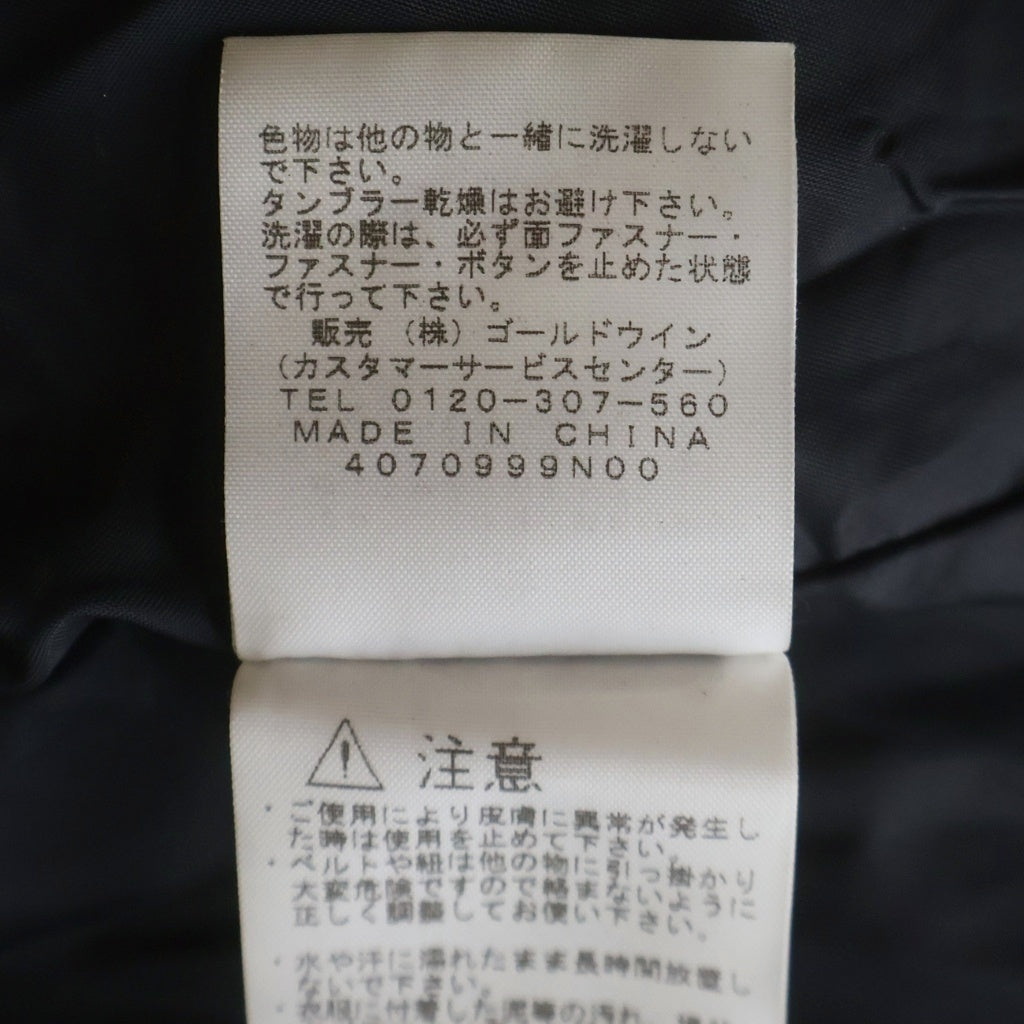 色物は他の物と一緒に洗濯しない
で下さい。
タンブラー乾燥はお避け下さい。
洗濯の際は、必ず面ファスナー・
ファスナー・ボタンを止めた状態
で行って下さい。
販売 (株)ゴールドウイン
(カスタマーサービスセンター)
TEL 0120-307-560
MADE IN CHINA
4070999N00
注意
・ご使用により皮膚に異常が発生し
た時は使用を止めて下さい。
・ベルトや紐は他の物に引っ掛かり
大変危険ですので絡まないように
正しく調整してお使い下さい。
・水や汗に濡れたまま長時間放置し
ないで下さい。
・衣服に付着した泥等の汚れ、